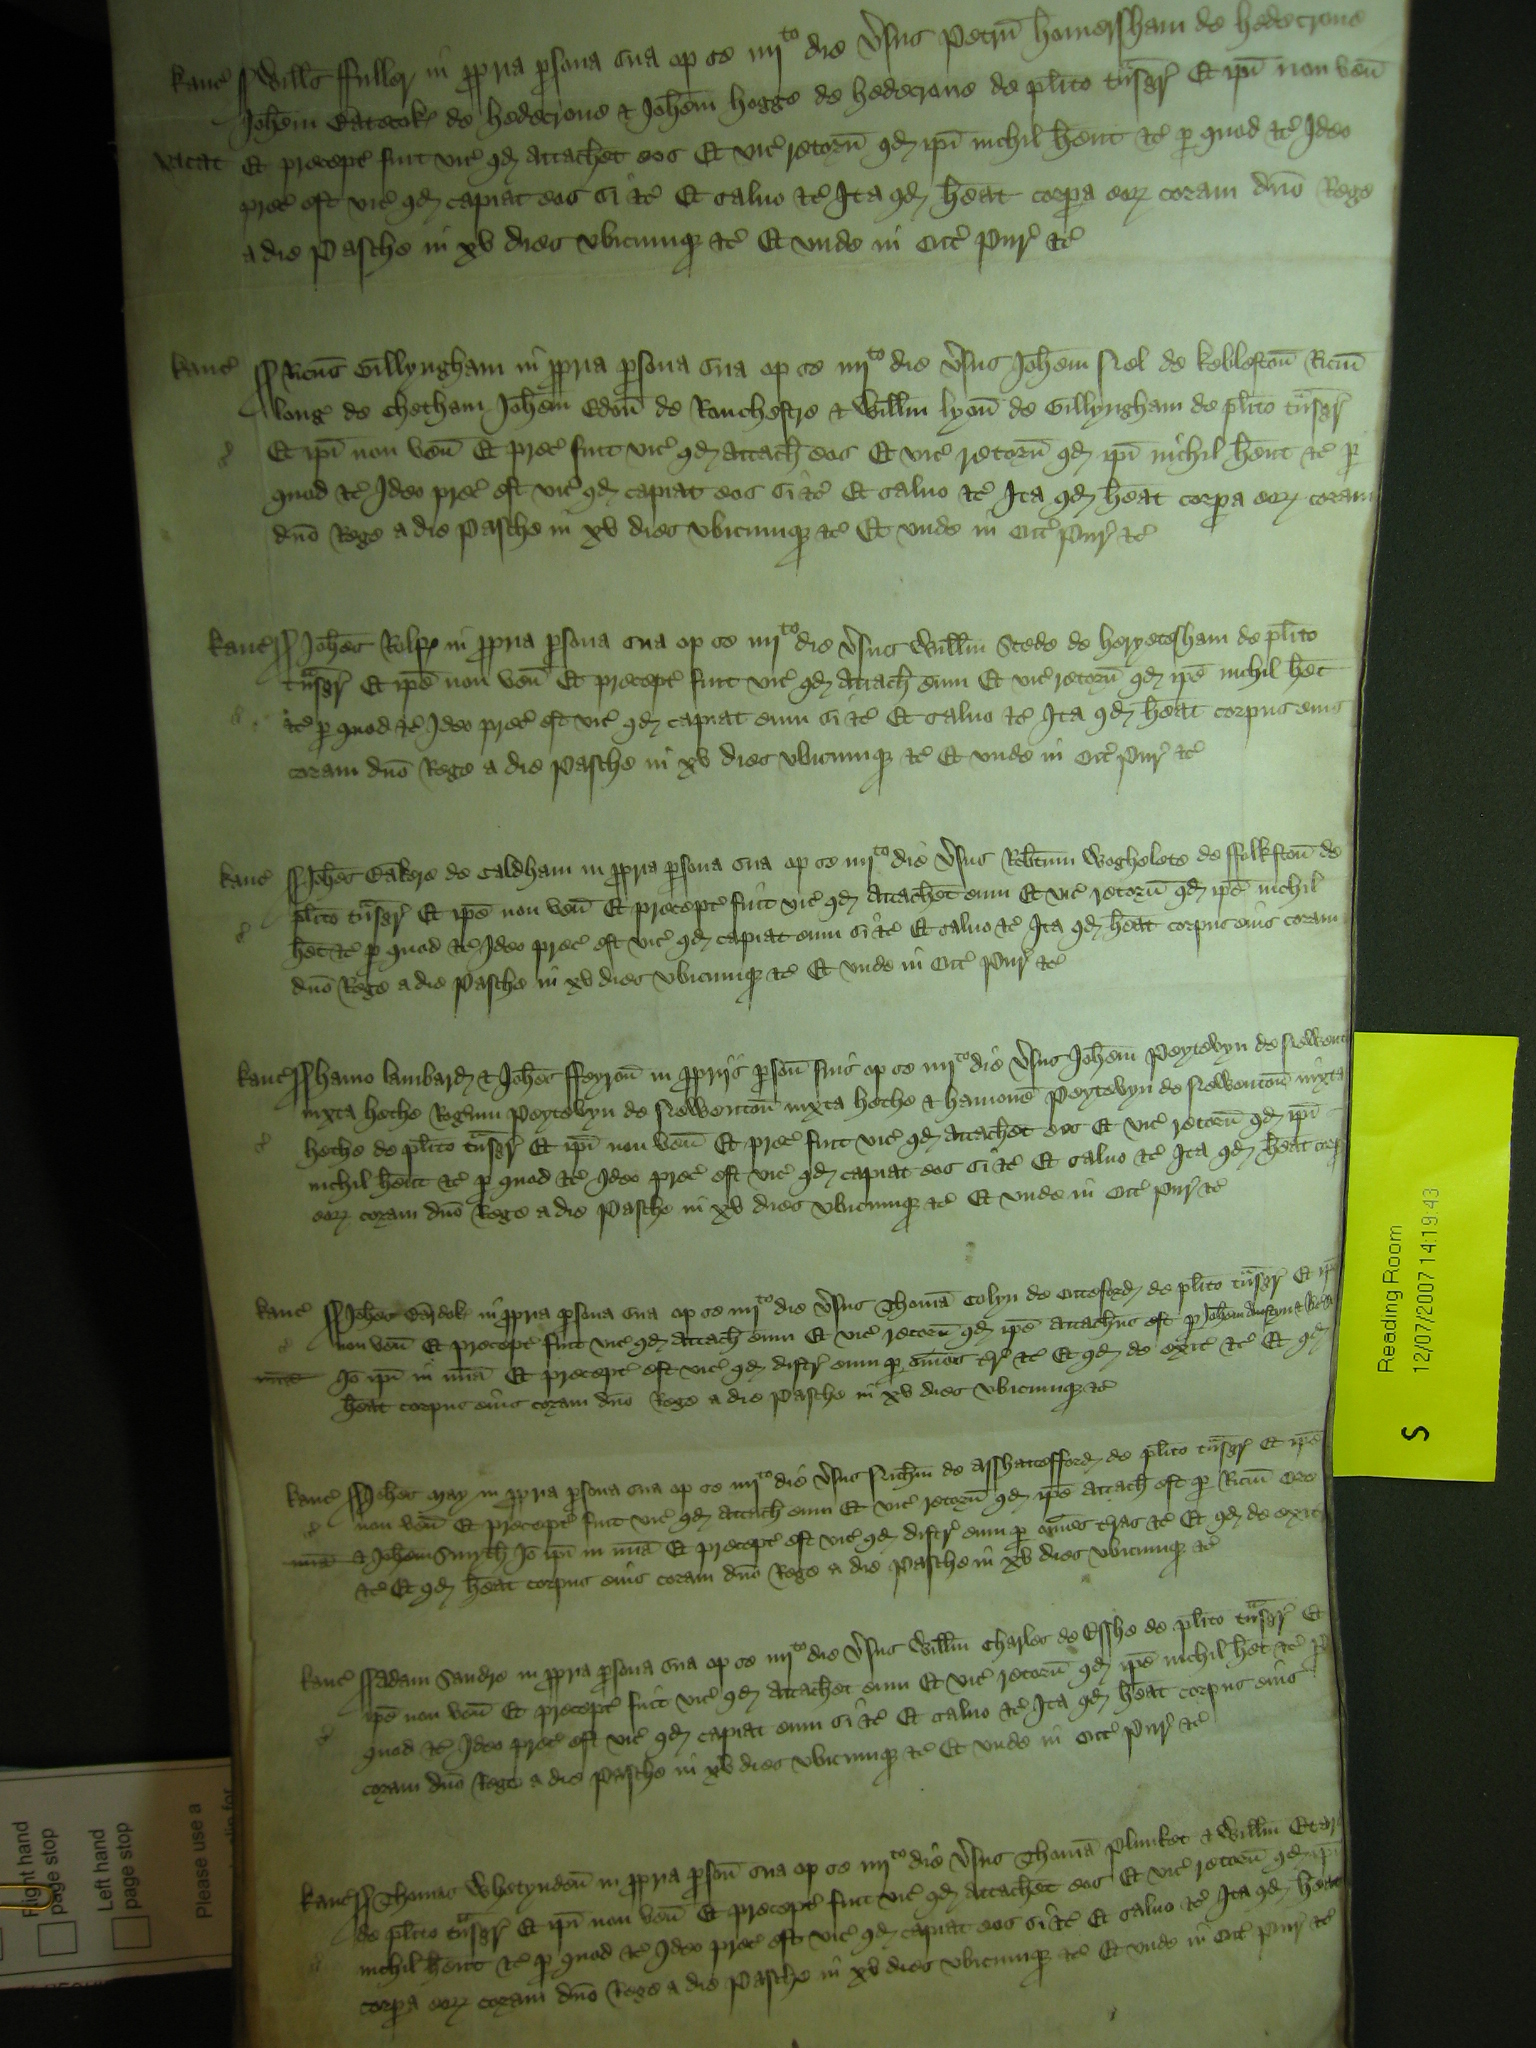 Kanc̄ Wills̄ ffuller in ppria psona sua op se iiijto die v̄sus Petrū Homersham de Hedecrone
Joh̄em Catecok de Hedecrone & Joh̄em Hogge de Hedecrone de pl̄ito tn̄sgr̄ Et ip̄i non ven̄
vacat Et precept̄ fuit vic̄ qd attachet eos Et vic̄ retorn̄ qd ip̄i nichil hent tc̄ p quod tc̄ Ideo
prec̄ est vic̄ qd capiat eos si tc̄ Et saluo tc̄ Ita qd heat corpa eoꝝ coram dn̄o Rege
a die Pasche in xv dies vbicumqꝫ tc̄ Et vnde in Oct̄ Pur̄ tc̄
Kanc̄ Ricus̄ Gillyngham in ppria psona sua op se iiijto die v̄sus Joh̄em Nel de Keblestoñ Ricm̄
Long de Chetham Joh̄em Edoñ de Rouchestre & Willm̄ Lyoñ de Gillyngham de pl̄ito tn̄sgr̄
Et ip̄i non ven̄ Et prec̄ fuit vic̄ qd attach eos Et vic̄ retorn̄ qd ip̄i nichil hent tc̄ p
quod tc̄ Ideo prec̄ est vic̄ qd capiat eos si tc̄ Et saluo tc̄ Ita qd heat corpa eoꝝ coram
dn̄o Rege a die Pasche in xv dies vbicumqꝫ tc̄ Et vnde in Oct̄ Pur̄ tc̄
Kanc̄ Joh̄es Rolpe in ppria psona sua op se iiijto die v̄sus Willm̄ Stede de Heryetesham de pl̄ito
tn̄sgr̄ Et ip̄e non ven̄ Et precept̄ fuit vic̄ qd attach eum Et vic̄ retorn̄ qd ip̄e nichil het
tc̄ p quod tc̄ Ideo prec̄ est vic̄ qd capiat eum si tc̄ Et saluo tc̄ Ita qd heat corpus eius
coram dn̄o Rege a die Pasche in xv dies vbicumqꝫ tc̄ Et vnde in Oct̄ Pur̄ tc̄
Kanc̄ Joh̄es Bakere de Caldham in ppria psona sua op se iiijto die v̄sus Robtum Wogholote de ffolkstoñ de
pl̄ito tn̄sgr̄ Et ip̄e non ven̄ Et precept̄ fuit vic̄ qd attachet eum Et vic̄ retorn̄ qd ip̄e nichil
het tc̄ p quod tc̄ Ideo prec̄ est vic̄ qd capiat eum si tc̄ Et saluo tc̄ Ita qd heat corpus eius coram
dn̄o Rege a die Pasche in xv dies vbicumqꝫ tc̄ Et vnde in Oct̄ Pur̄ tc̄
Kanc̄ Hamo Lambard & Joh̄es ffeyroñ in pprijs psoñ suis op se iiijto die v̄sus Joh̄em Peytewyn de Newent
iuxta Hethe Rogerum Peytewyn de Newentoñ iuxta Hethe & Hamonē Peytewyn de Newentoñ iuxta
Hethe de pl̄ito tn̄sgr̄ Et ip̄i non ven̄ Et prec̄ fuit vic̄ qd attachet eos Et vic̄ retorn̄ qd ip̄i
nichil hent tc̄ p quod tc̄ Ideo prec̄ est vic̄ qd capiat eos si tc̄ Et saluo tc̄ Ita qd heat corp
eoꝝ coram dn̄o Rege a die Pasche in xv dies vbicumqꝫ tc̄ Et vnde in Oct̄ Pur̄ tc̄
Kanc̄ Joh̄es in ppria psona sua op se iiijto die v̄sus Thomā Colyn de Otteford de pl̄ito tn̄sgr̄ Et ip̄e
non ven̄ Et precept̄ fuit vic̄ qd attach eum Et vic̄ retorn̄ qd ip̄e attachus est p Joh̄em
mīa Io ip̄i in mīa Et precept̄ est vic̄ qd distr̄ eum p om̄es tr̄ tc̄ Et qd de exit̄ tc̄ Et qd
heat corpus eius coram dn̄o Rege a die Pasche in xv dies vbicumqꝫ tc̄
Kanc̄ Joh̄es May in ppria psona sua op se iiijto die v̄sus Nichm̄ de Asshatesfford de pl̄ito tn̄sgr̄ Et ip̄e
non ven̄ Et precept̄ fuit vic̄ qd attach eum Et vic̄ retorn̄ qd ip̄e attach est p Ricm̄
mīa & Joh̄em Smyth Io ip̄i in mīa Et precept̄ est vic̄ qd distr̄ eum p om̄es tras tc̄ Et qd de exit̄
tc̄ Et qd heat corpus eius coram dn̄o Rege a die Pasche in xv dies vbicumqꝫ tc̄
Kanc̄ Adam Sandre in ppria psona sua op se iiijto die v̄sus Willm̄ Charles de Esshe de pl̄ito tn̄sgr̄ Et
ip̄e non ven̄ Et precept̄ fuit vic̄ qd attachet eum Et vic̄ retorn̄ qd ip̄e nichil het tc̄ p
quod tc̄ Ideo prec̄ est vic̄ qd capiat eum si tc̄ Et saluo tc̄ Ita qd heat corpus eius
coram dn̄o Rege a die Pasche in xv dies vbicumqꝫ tc̄ Et vnde in Oct̄ Pur̄ tc̄
Kanc̄ Thomas Whetyndoñ in ppria psoñ sua op se iiijto die v̄sus Thomā Plunket & Willm̄
de pl̄ito tn̄sgr̄ Et ip̄i non ven̄ Et precept̄ fuit vic̄ qd attachet eos Et vic̄ retorn̄ qd ip̄i
nichil hent tc̄ p quod tc̄ Ideo prec̄ est vic̄ qd capiat eos si tc̄ Et saluo tc̄ Ita qd heat
corpa eoꝝ coram dn̄o Rege a die Pasche in xv dies vbicumqꝫ tc̄ Et vnde in Oct̄ Pur̄ tc̄
Reading Room
12/07/2007 14:19:43
S
Right hand
page stop
Left hand
page stop
Please use a